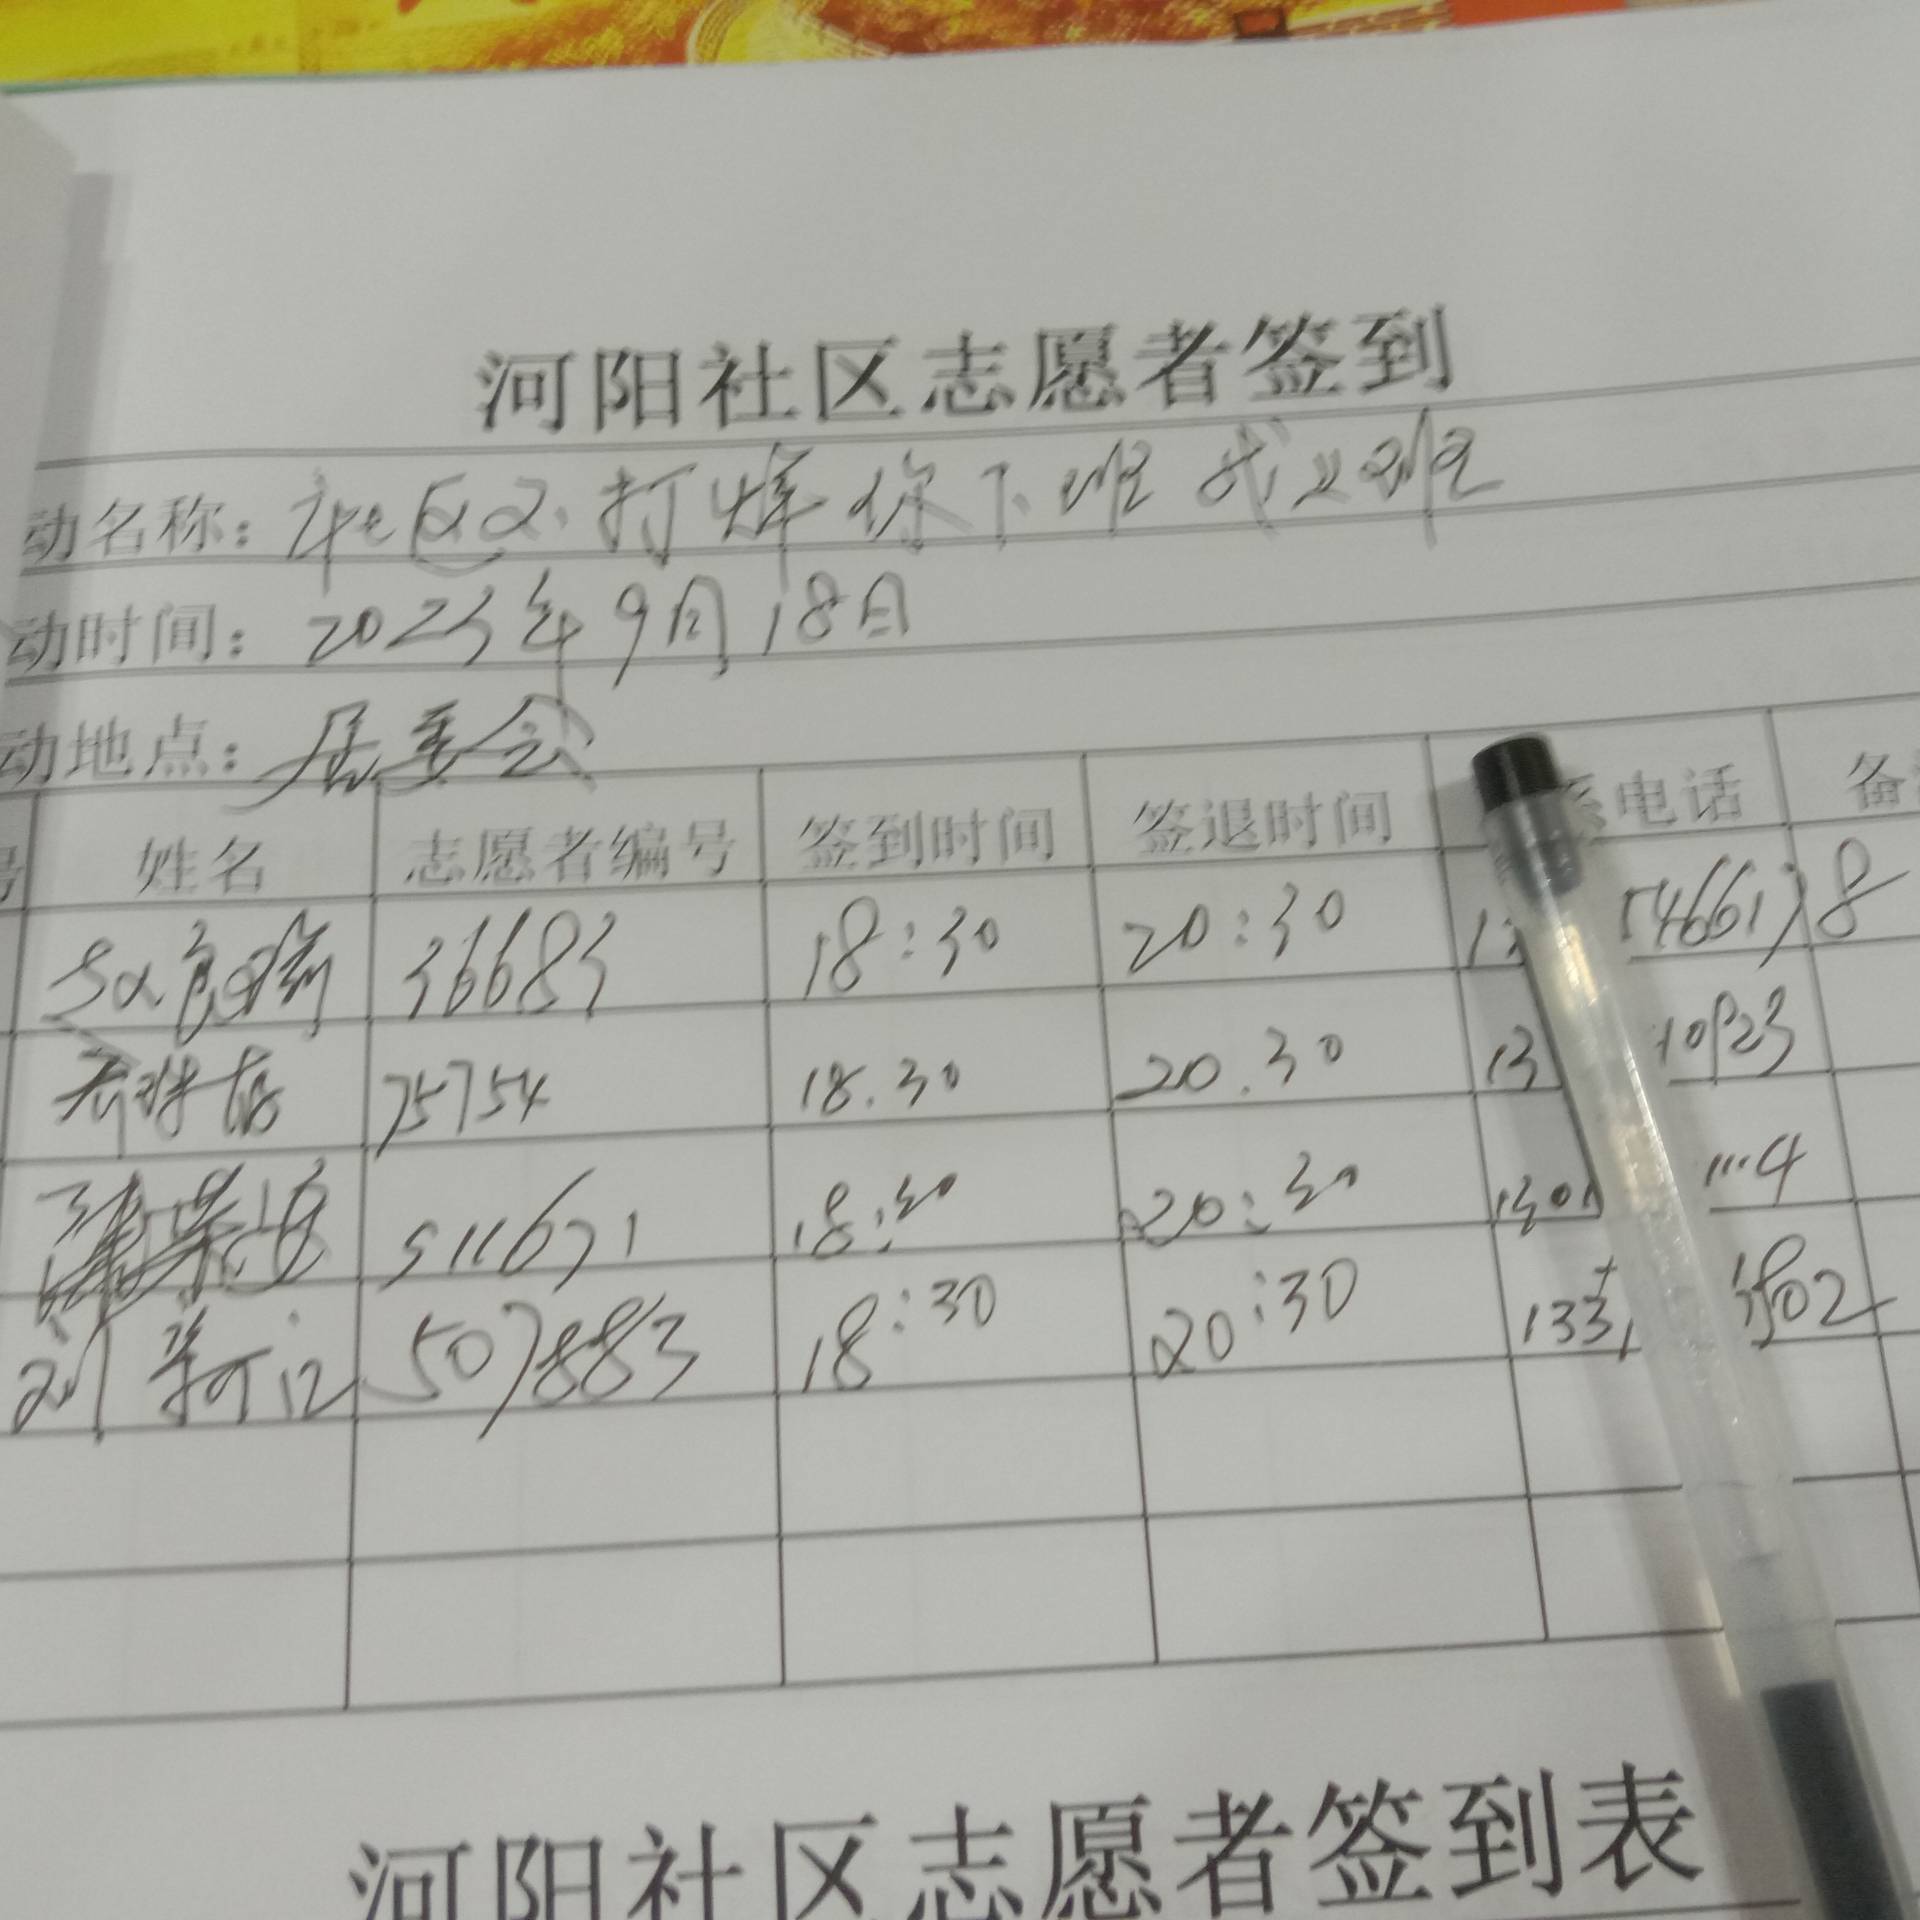 河阳社区志愿者签到
动名称：社区不打烊你下班我上班
动时间：2023年9月18日
动地点：居委会
号 姓名 志愿者编号 签到时间 签退时间 电话 备
36683 18:30 20:30 8
75754 18.30 20.30 13
511671 18:30 20:30 1301 4
刘 507883 18:30 20:30 133
河阳社区志愿者签到表